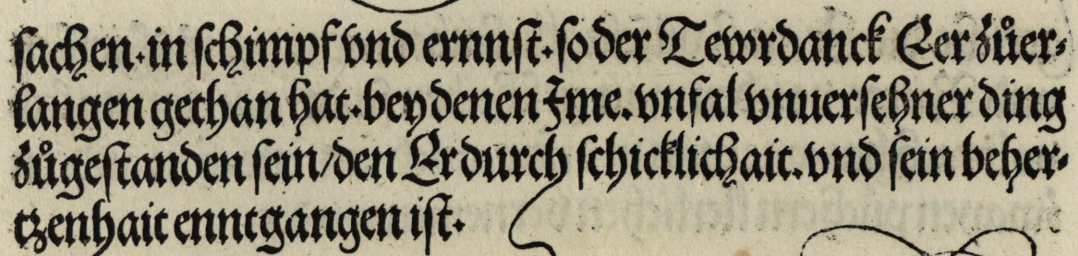 sachen· in schimpf vnd ernnst· so der Tewrdanck Eer zůer⸗
langen gethan hat· bey denen Ime. vnfal vnuersehner ding
zůgestanden sein/ den Er durch schicklichait. vnd sein beher⸗
tzenhait enntgangen ist·